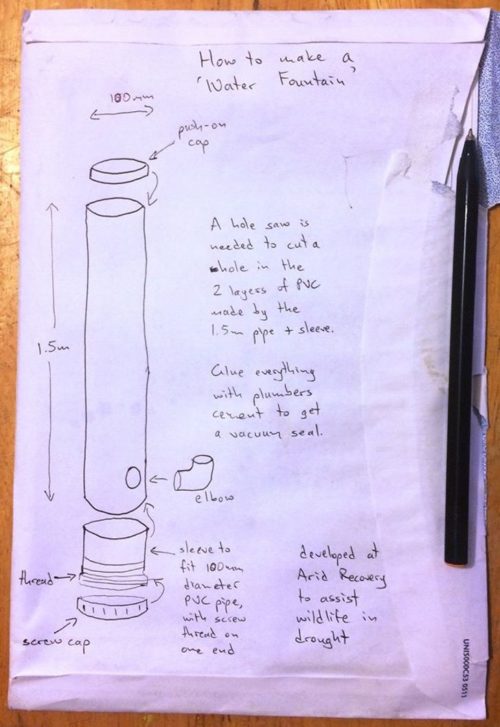 How to make a
'Water Fountain'
100mm
push-on
cap
1.5m
A hole saw is
needed to cut a
hole in the
2 layers of PVC
made by the
1.5m pipe + sleeve.
Glue everything
with plumbers
cement to get
a vacuum seal.
elbow
thread
screw cap
sleeve to
fit 100mm
diameter
PVC pipe,
with screw
thread on
one end
developed at
Arid Recovery
to assist
wildlife in
drought
UNI5000C53 0511